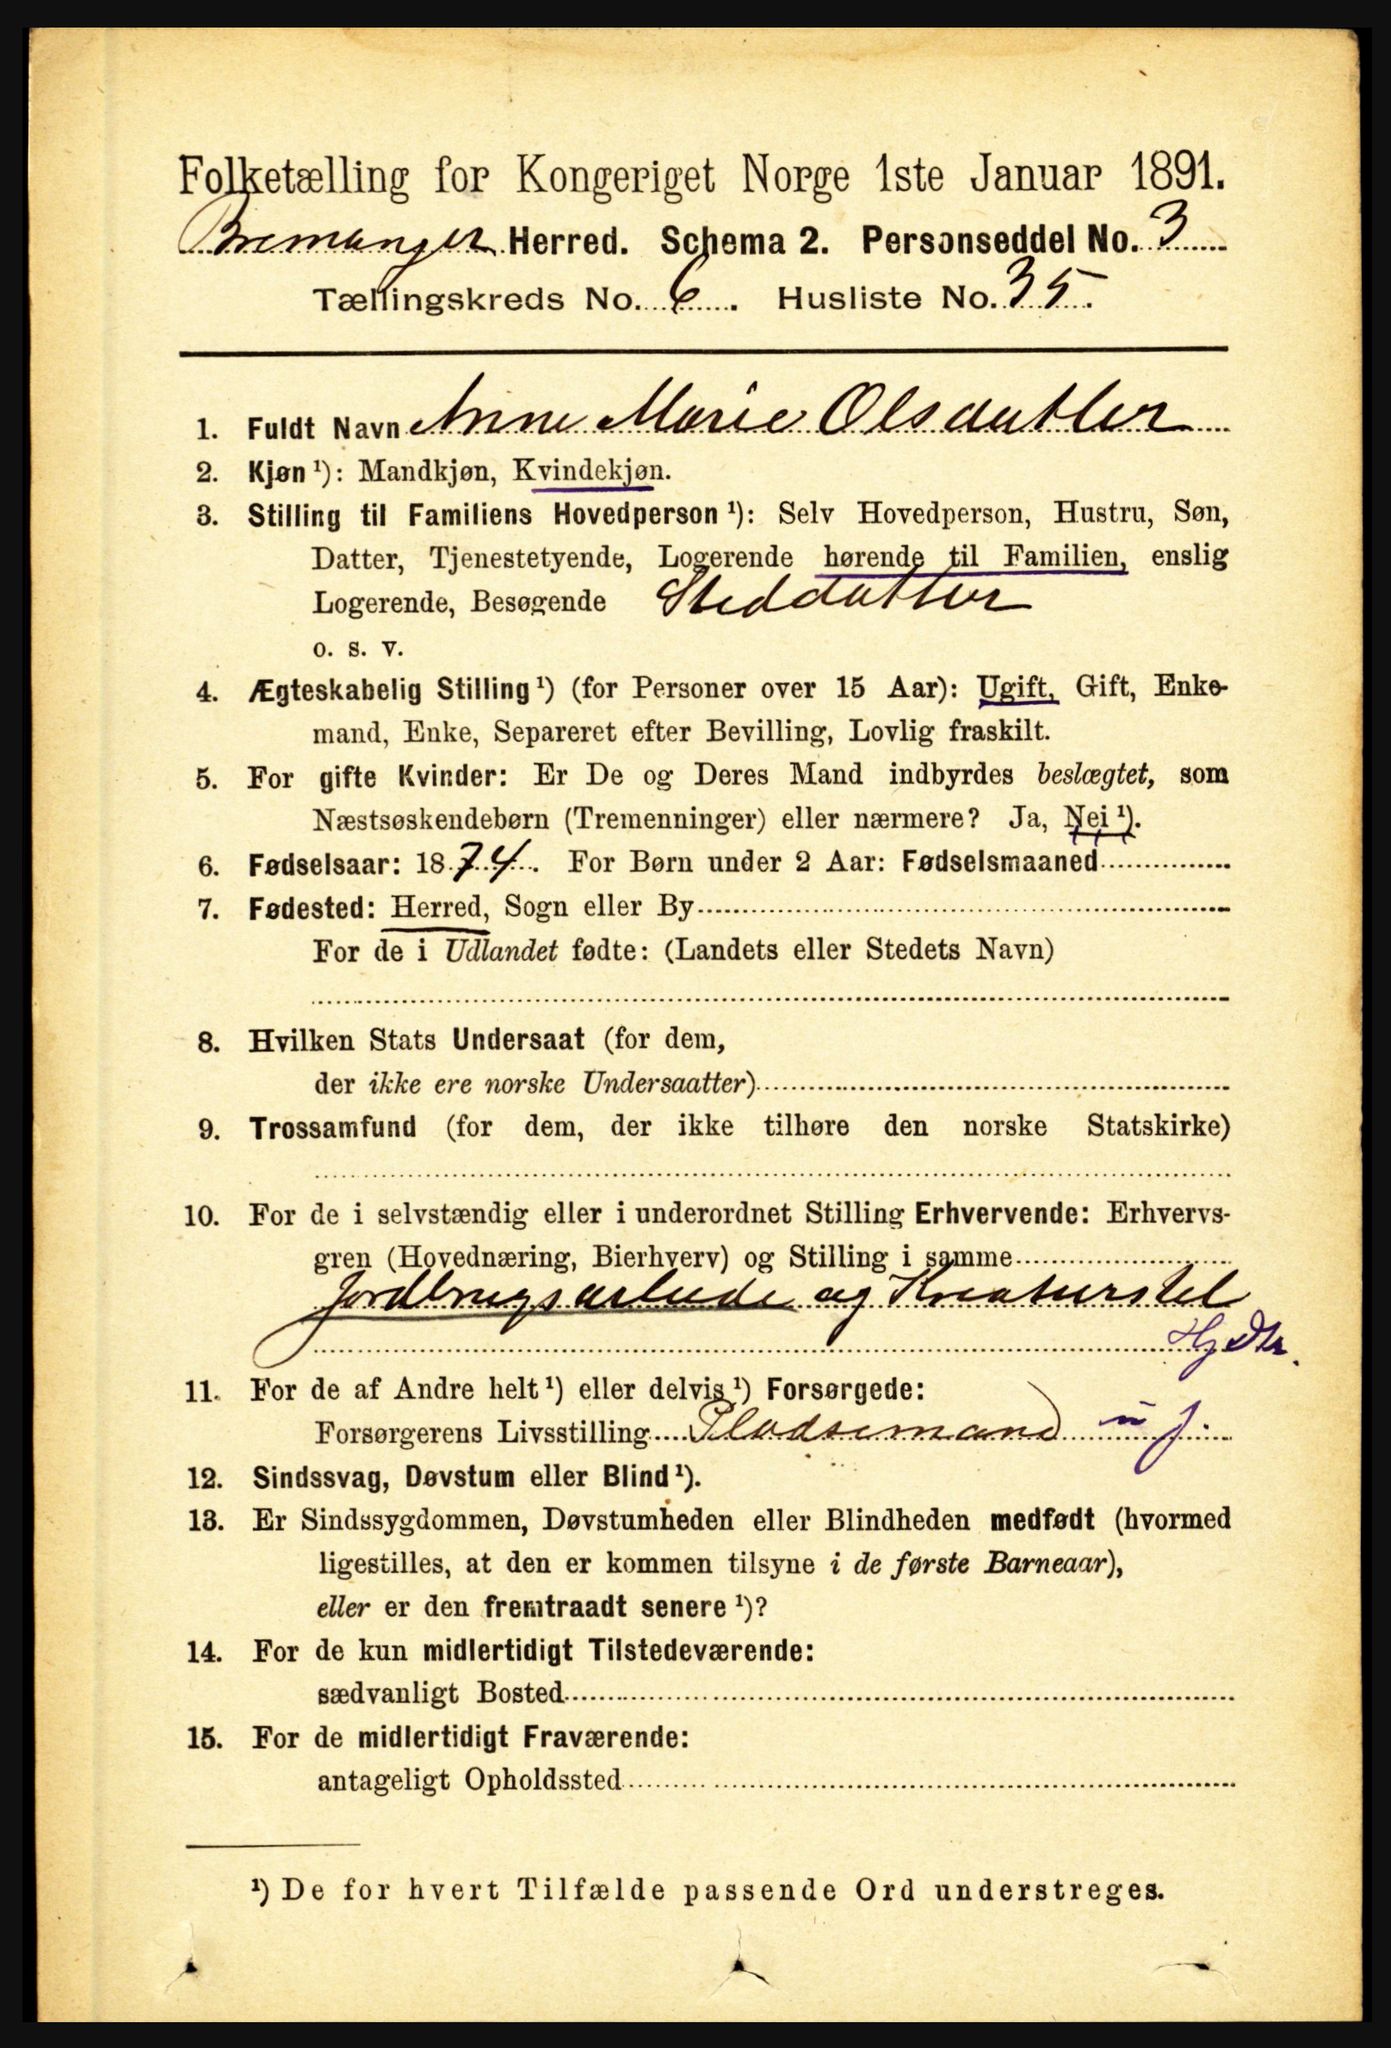 Folketælling for Kongeriget Norge 1ste Januar 1891.
Bremanger Herred. Schema 2. Personseddel No. 3
Tællingskreds No. 6. Husliste No. 35.
1. Fuldt Navn Anne Marie Olsdatter
2. Kjøn ¹): Mandkjøn, Kvindekjøn.
3. Stilling til Familiens Hovedperson ¹): Selv Hovedperson, Hustru, Søn,
Datter, Tjenestetyende, Logerende hørende til Familien, enslig
Logerende, Besøgende Steddatter
o. s. v.
4. Ægteskabelig Stilling ¹) (for Personer over 15 Aar): Ugift, Gift, Enke-
mand, Enke, Separeret efter Bevilling, Lovlig fraskilt.
5. For gifte Kvinder: Er De og Deres Mand indbyrdes beslægtet, som
Næstsøskendebørn (Tremenninger) eller nærmere? Ja, Nei ¹).
6. Fødselsaar: 1874. For Børn under 2 Aar: Fødselsmaaned
7. Fødested: Herred, Sogn eller By
For de i Udlandet fødte: (Landets eller Stedets Navn)
8. Hvilken Stats Undersaat (for dem,
der ikke ere norske Undersaatter)
9. Trossamfund (for dem, der ikke tilhøre den norske Statskirke)
10. For de i selvstændig eller i underordnet Stilling Erhvervende: Erhvervs-
gren (Hovednæring, Bierhverv) og Stilling i samme
Jordbrugsarbeide og Kreaturstel
Hj Dtr.
11. For de af Andre helt ¹) eller delvis ¹) Forsørgede:
Forsørgerens Livsstilling Pladsemand u j.
12. Sindssvag, Døvstum eller Blind ¹).
13. Er Sindssygdommen, Døvstumheden eller Blindheden medfødt (hvormed
ligestilles, at den er kommen tilsyne i de første Barneaar),
eller er den fremtraadt senere ¹)?
14. For de kun midlertidigt Tilstedeværende:
sædvanligt Bosted
15. For de midlertidigt Fraværende:
antageligt Opholdssted
¹) De for hvert Tilfælde passende Ord understreges.